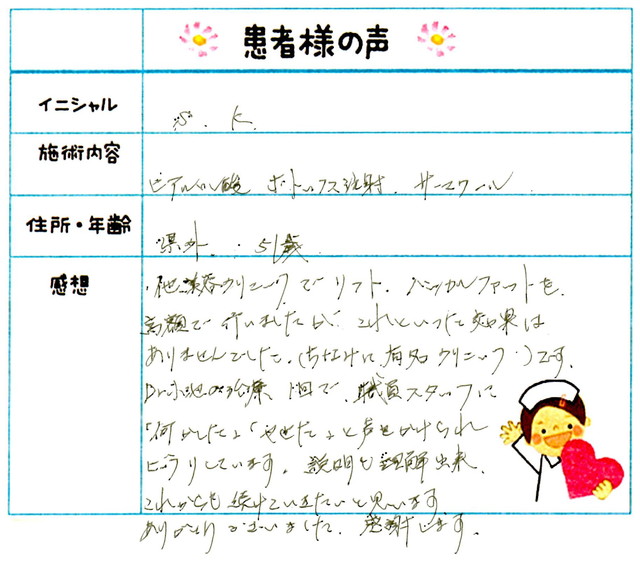 患者様の声
イニシャル
S. K.
施術内容
ヒアルロン酸 ボトックス注射. サーマクール.
住所・年齢
県外. 51歳
感想
他美容クリニックでリフト. ハッカルファットを.
高額で行いましたが これといった効果は
ありませんでした. (ちなみに有名クリニック)です.
Dr.小池の治療 1回で. 職員スタッフに
「何かした」「やせた」と声をかけられ
びっくりしています. 説明も理解出来.
これからも続けていきたいと思います
ありがとうございました. 感謝します.